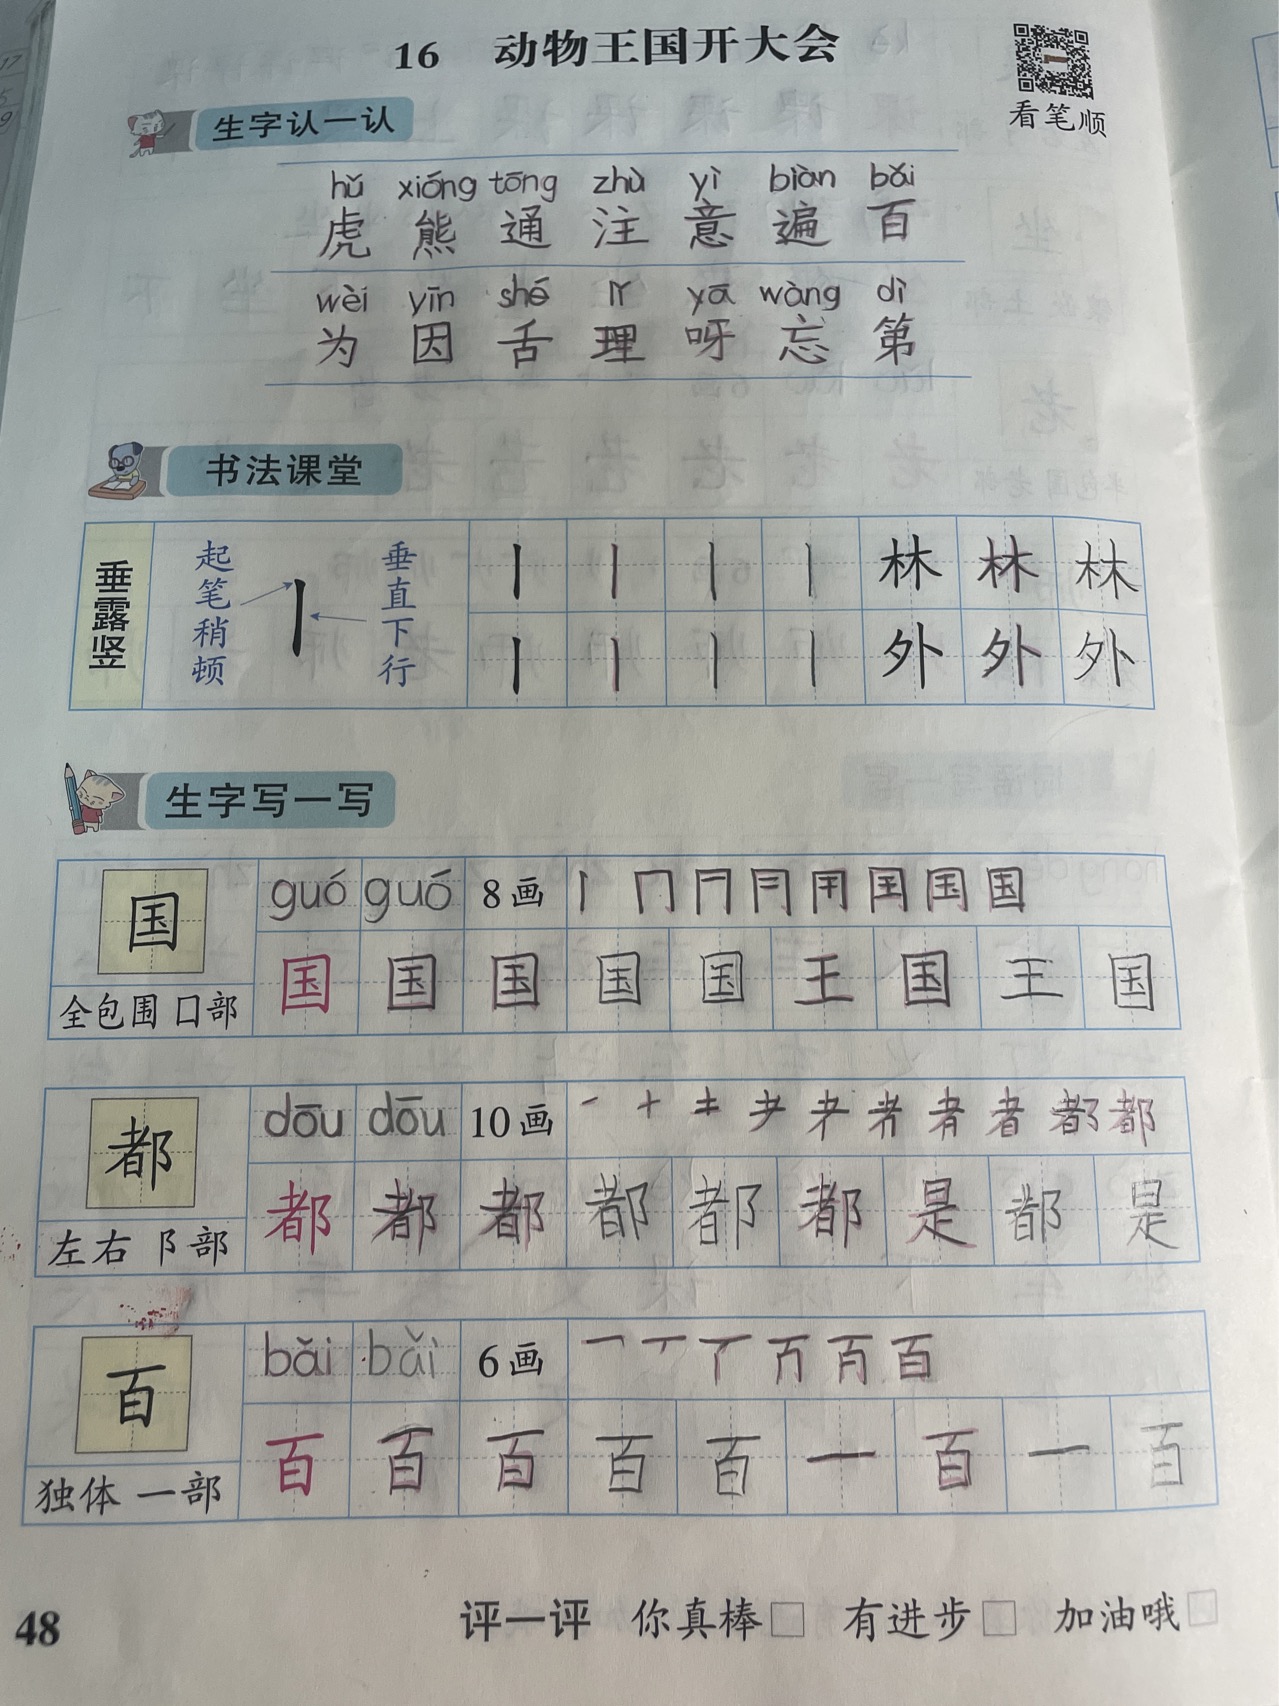 16 动物王国开大会
看笔顺
生字认一认
hǔ xióng tōng zhù yì biàn bǎi
虎 熊 通 注 意 遍 百
wèi yīn shé lǐ yā wàng dì
为 因 舌 理 呀 忘 第
书法课堂
垂露竖 起笔稍顿 垂直下行
丨 丨 丨 丨 林 林 林
丨 丨 丨 丨 外 外 外
生字写一写
国 guó guó 8画 丨 冂 国
全包围 囗部 国 国 国 国 国 王 国 王 国
都 dōu dōu 10画 一 十 耂 者 都
左右 阝部 都 都 都 都 都 都 是 都 是
百 bǎi bǎi 6画 一 丆 百
独体 一部 百 百 百 百 百 一 百 一 百
48 评一评 你真棒□ 有进步□ 加油哦□